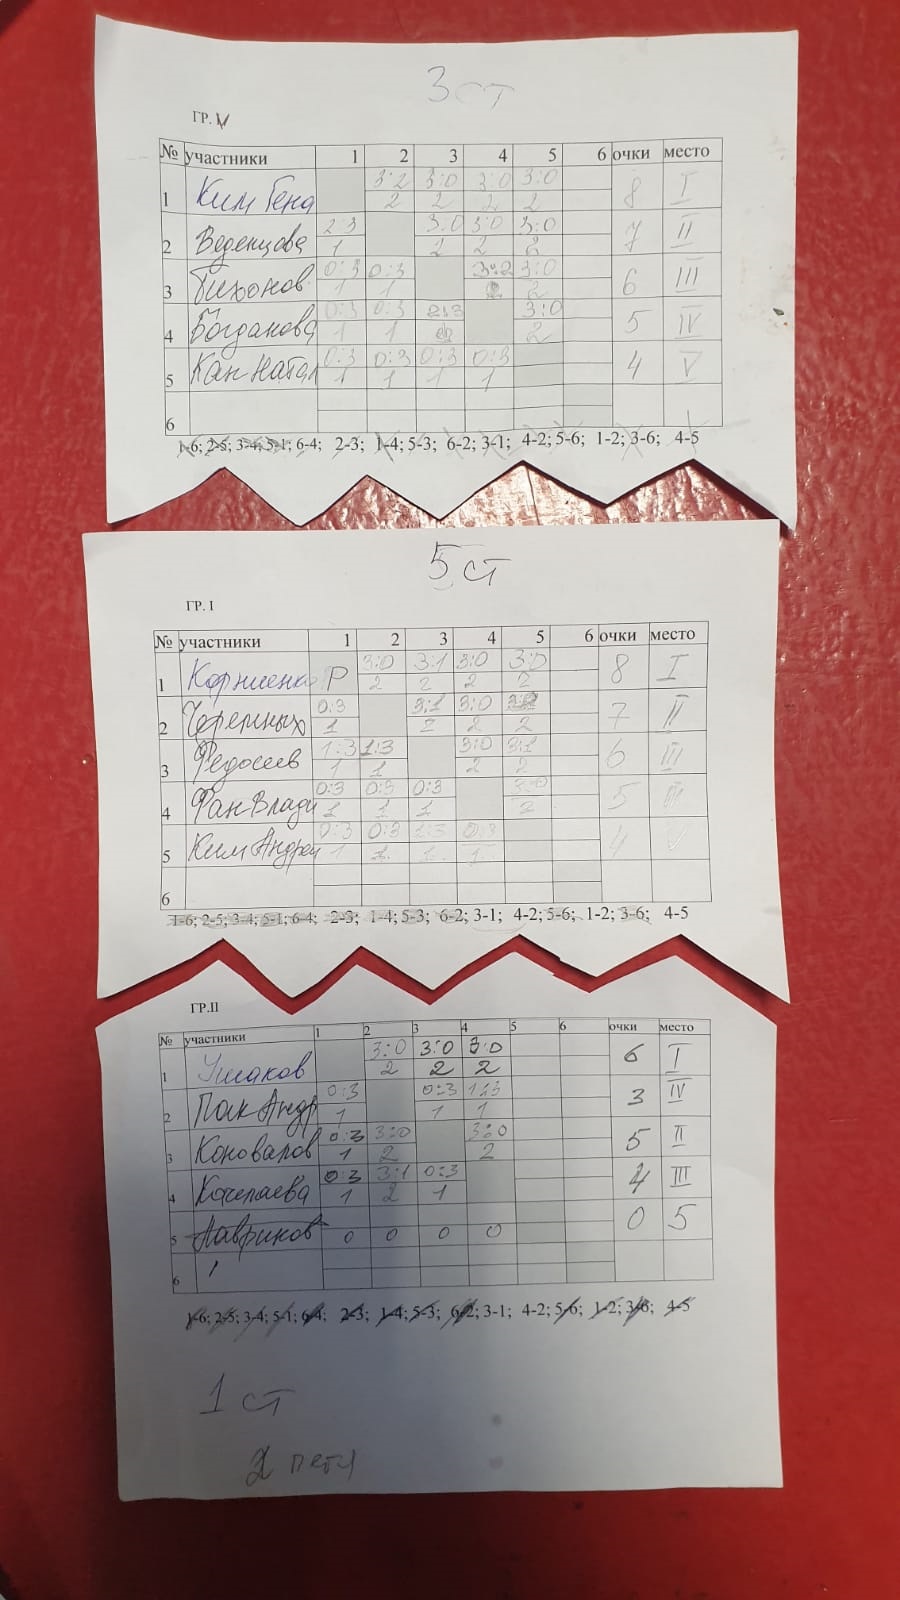 3 ст
ГР. V
№ участники 1 2 3 4 5 6 очки место
1 Ким Гена 3:2 3:0 3:0 3:0 8 I
2 2 2 2
2 Веденцова 2:3 3:0 3:0 3:0 7 II
1 2 2 2
3 Тихонов 0:3 0:3 3:2 3:0 6 III
1 1 2 2
4 Богданова 0:3 0:3 2:3 3:0 5 IV
1 1 2
5 Кан Натал 0:3 0:3 0:3 0:3 4 V
1 1 1 1
6
1-6; 2-5; 3-4; 5-1; 6-4; 2-3; 1-4; 5-3; 6-2; 3-1; 4-2; 5-6; 1-2; 3-6; 4-5
5 ст
ГР. I
№ участники 1 2 3 4 5 6 очки место
1 Корниенко Р 3:0 3:1 3:0 3:0 8 I
2 2 2 2
2 Черемных 0:3 3:1 3:0 7 II
1 2 2 2
3 Федосеев 1:3 1:3 3:0 3:1 6 III
1 1 2 2
4 Фан Влади 0:3 0:3 0:3 3:0 5
1 1 1 2
5 Ким Андрей 0:3 0:3 1:3 0:3 4 V
1 1 1 1
6
1-6; 2-5; 3-4; 5-1; 6-4; 2-3; 1-4; 5-3; 6-2; 3-1; 4-2; 5-6; 1-2; 3-6; 4-5
ГР.II
№ участники 1 2 3 4 5 6 очки место
1 Ушаков 3:0 3:0 3:0 6 I
2 2 2
2 Пак Андр 0:3 0:3 1:3 3 IV
1 1 1
3 Коновалов 0:3 3:0 3:0 5 II
1 2 2
4 Кочепаева 0:3 3:1 0:3 4 III
1 2 1
5 Лавриков 0 0 0 0 0 5
6
1-6; 2-5; 3-4; 5-1; 6-4; 2-3; 1-4; 5-3; 6-2; 3-1; 4-2; 5-6; 1-2; 3-6; 4-5
1 ст